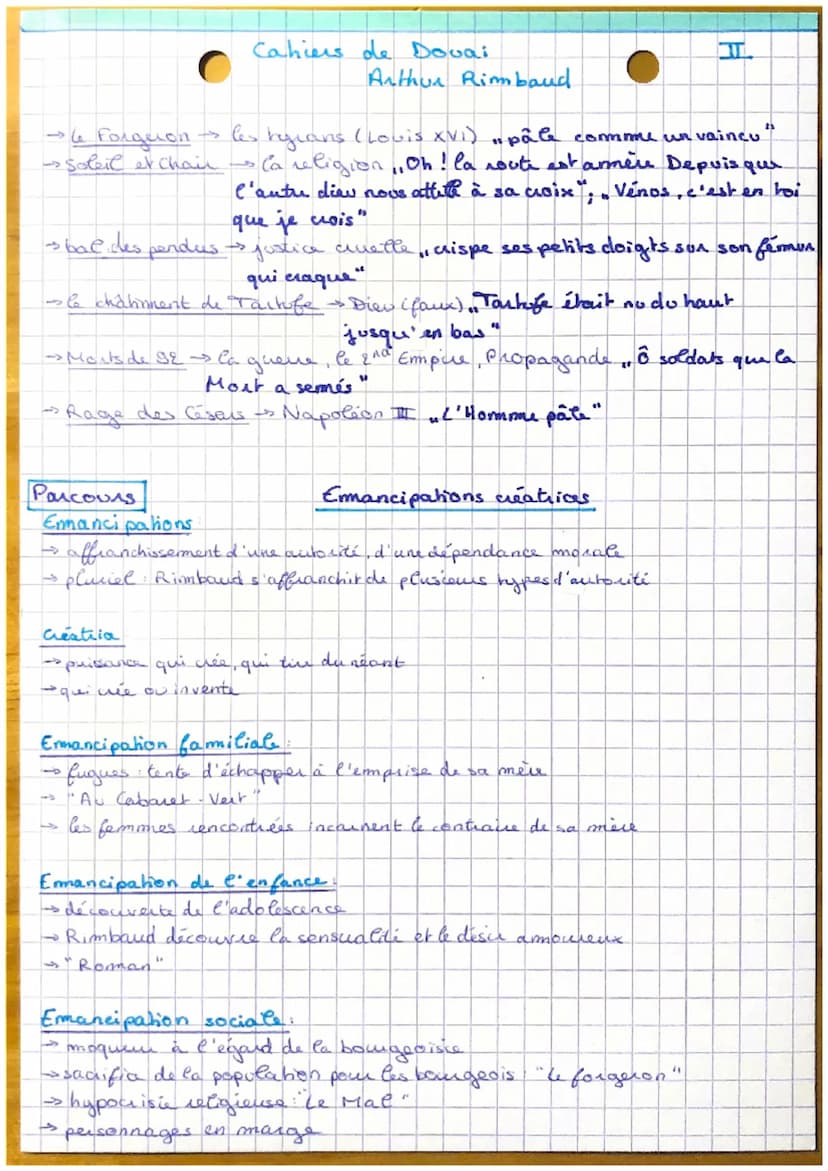 Cahiers de Douai II
Arthur Rimbaud
→ Le Forgeron → les tyrans (Louis XVI) „pâle comme un vaincu"
→ Soleil et Chair → la religion „Oh ! la route est amère Depuis que
l'autre dieu nous attelle à sa croix"; „Vénus, c'est en toi
que je crois"
→ bal des pendus → justice cruelle „crispe ses petits doigts sur son fémur
qui craque"
→ le châtiment de Tartufe → Dieu (faux) „Tartufe était nu du haut
jusqu'en bas"
→ Morts de 92 → la guerre, le 2nd Empire, Propagande „Ô soldats que la
Mort a semés"
→ Rage des Césars → Napoléon III „L'Homme pâle"
Parcours Emancipations créatrices
Emancipations
→ affranchissement d'une autorité, d'une dépendance morale
→ pluriel : Rimbaud s'affranchit de plusieurs types d'autorité
Créatrice
→ puissance qui crée, qui tire du néant
→ qui crée ou invente
Emancipation familiale :
→ fugues : tente d'échapper à l'emprise de sa mère
→ "Au Cabaret-Vert"
→ les femmes rencontrées incarnent le contraire de sa mère
Emancipation de l'enfance :
→ découverte de l'adolescence
→ Rimbaud découvre la sensualité et le désir amoureux
→ "Roman"
Emancipation sociale :
→ moqueur à l'égard de la bourgeoisie
→ sacrifice de la population pour les bourgeois : "Le forgeron"
→ hypocrisie religieuse : "Le Mal"
→ personnages en marge